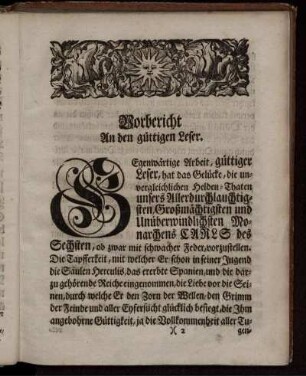 Vorbericht
An den güttigen Leser.
GEgenwärtige Arbeit, güttiger
Leser, hat das Gelücke, die un-
vergleichlichen Helden-Thaten
unsers Allerdurchlauchtig-
sten, Großmächtigsten und
Unüberwindlichsten Mo-
narchens CARLS des
Sechsten, ob zwar mit schwacher Feder, vorzustellen.
Die Tapferkeit, mit welcher Er schon in seiner Jugend
die Säulen Herculis, das ererbte Spanien, und die dar-
zu gehörende Reiche eingenommen, die Liebe vor die Sei-
nen, durch welche Er den Zorn der Wellen, den Grimm
der Feinde und aller Eyfersucht glücklich besiegt, die Ihm
angebohrne Güttigkeit, ja die Vollkommenheit aller Tu-
)( 2
gen-